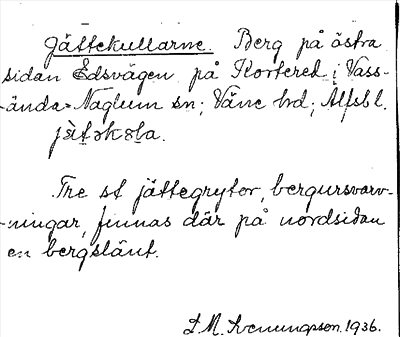 Jättekullarne. Berg på östra
sidan Edsvägen på Kortered i Vass-
ända-Naglum sn; Väne hd; Älfsbl.
jätəkɷla.
Tre st jättegrytor, bergursvarv-
ningar, finnas där på nordsidan
en bergslänt.
L. M. Svenungsson. 1936.